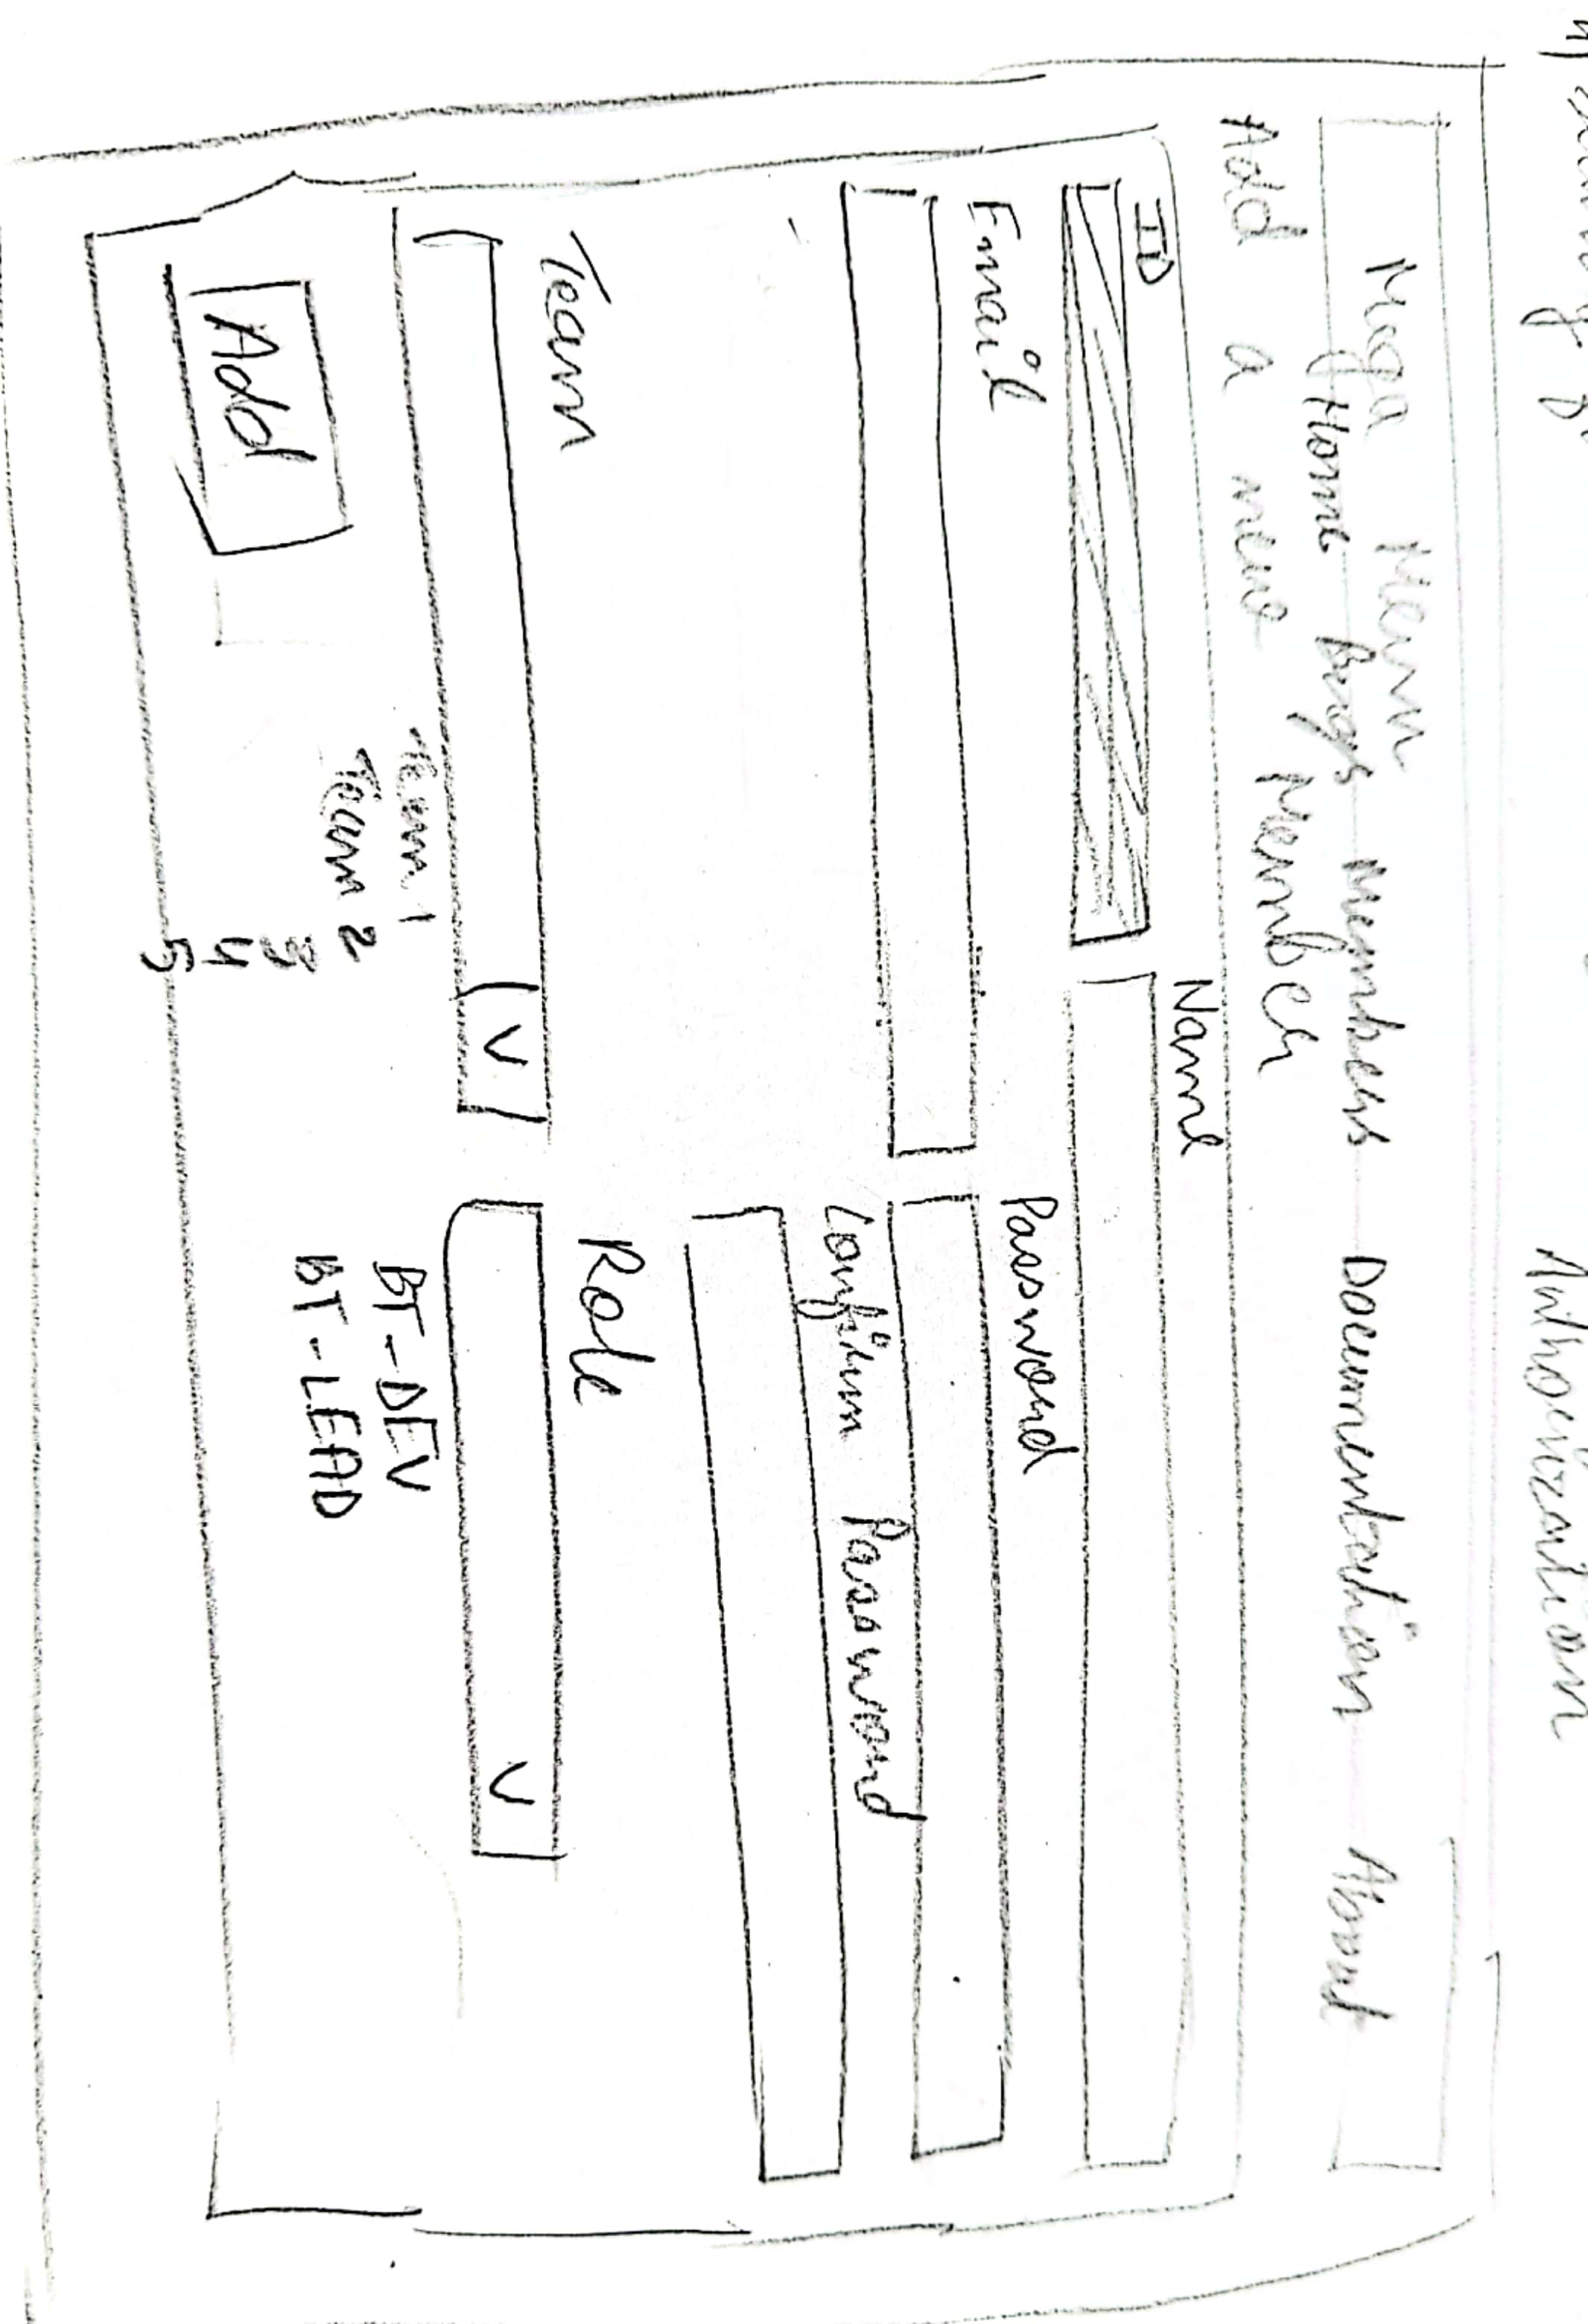 Authorization
Mega Menu
Home Bugs Members Documentation About
Add a new Member
ID Name
Email Password
Confirm Password
Team Role
Team 1 BT-DEV
Team 2 BT-LEAD
3
4
5
Add